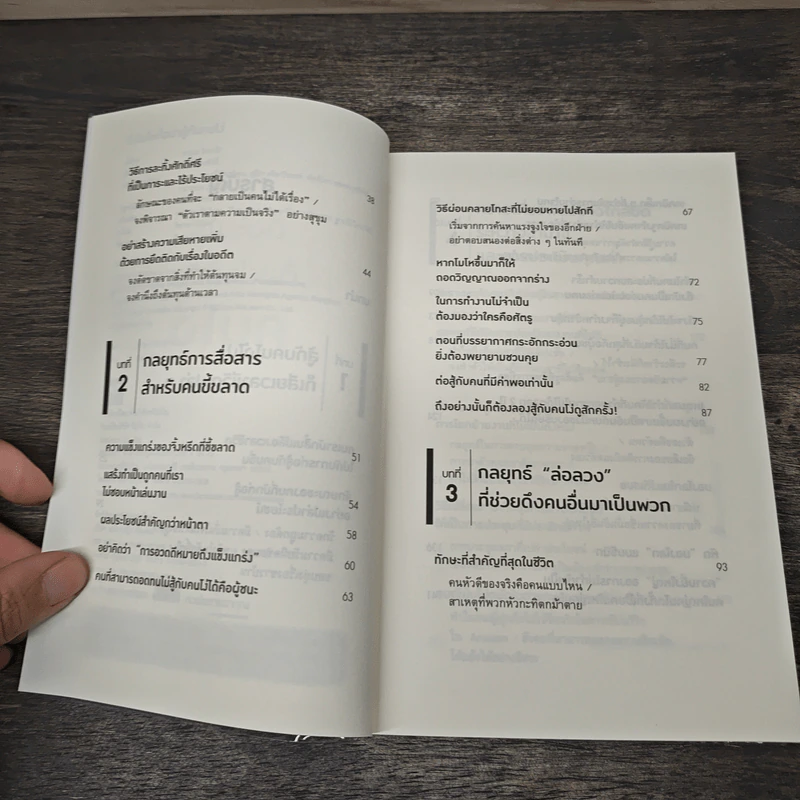 วิธีการละทิ้งศักดิ์ศรี
ที่เป็นภาระและไร้ประโยชน์ 38
ลักษณะของคนที่จะ “กลายเป็นคนไม่ได้เรื่อง” /
จงพิจารณา “ตัวเราตามความเป็นจริง” อย่างสุขุม
อย่าสร้างความเสียหายเพิ่ม
ด้วยการยึดติดกับเรื่องในอดีต 44
จงตัดขาดจากสิ่งที่ทำให้ต้นทุนจม /
จงคำนึงถึงต้นทุนด้านเวลา
บทที่ 2
กลยุทธ์การสื่อสาร
สำหรับคนขี้ขลาด
ความแข็งแกร่งของจิ้งหรีดที่ขี้ขลาด 51
แสร้งทำเป็นถูกคนที่เรา
ไม่ชอบหน้าเล่นงาน 54
ผลประโยชน์สำคัญกว่าหน้าตา 58
อย่าคิดว่า “การอวดดีหมายถึงแข็งแกร่ง” 60
คนที่สามารถอดทนไม่สู้กับคนโง่ได้คือผู้ชนะ 63
วิธีผ่อนคลายโทสะที่ไม่ยอมหายไปสักที 67
เริ่มจากการค้นหาแรงจูงใจของอีกฝ่าย /
อย่าตอบสนองต่อสิ่งต่าง ๆ ในทันที
หากโมโหขึ้นมาก็ให้
ถอดวิญญาณออกจากร่าง 72
ในการทำงานไม่จำเป็น
ต้องมองว่าใครคือศัตรู 75
ตอนที่บรรยากาศกระอักกระอ่วน
ยิ่งต้องพยายามชวนคุย 77
ต่อสู้กับคนที่มีค่าพอเท่านั้น 82
ถึงอย่างนั้นก็ต้องลองสู้กับคนโง่ดูสักครั้ง! 87
บทที่ 3
กลยุทธ์ “ล่อลวง”
ที่ช่วยดึงคนอื่นมาเป็นพวก
ทักษะที่สำคัญที่สุดในชีวิต 93
คนหัวดีของจริงคือคนแบบไหน /
สาเหตุที่พวกหัวกะทิตกม้าตาย